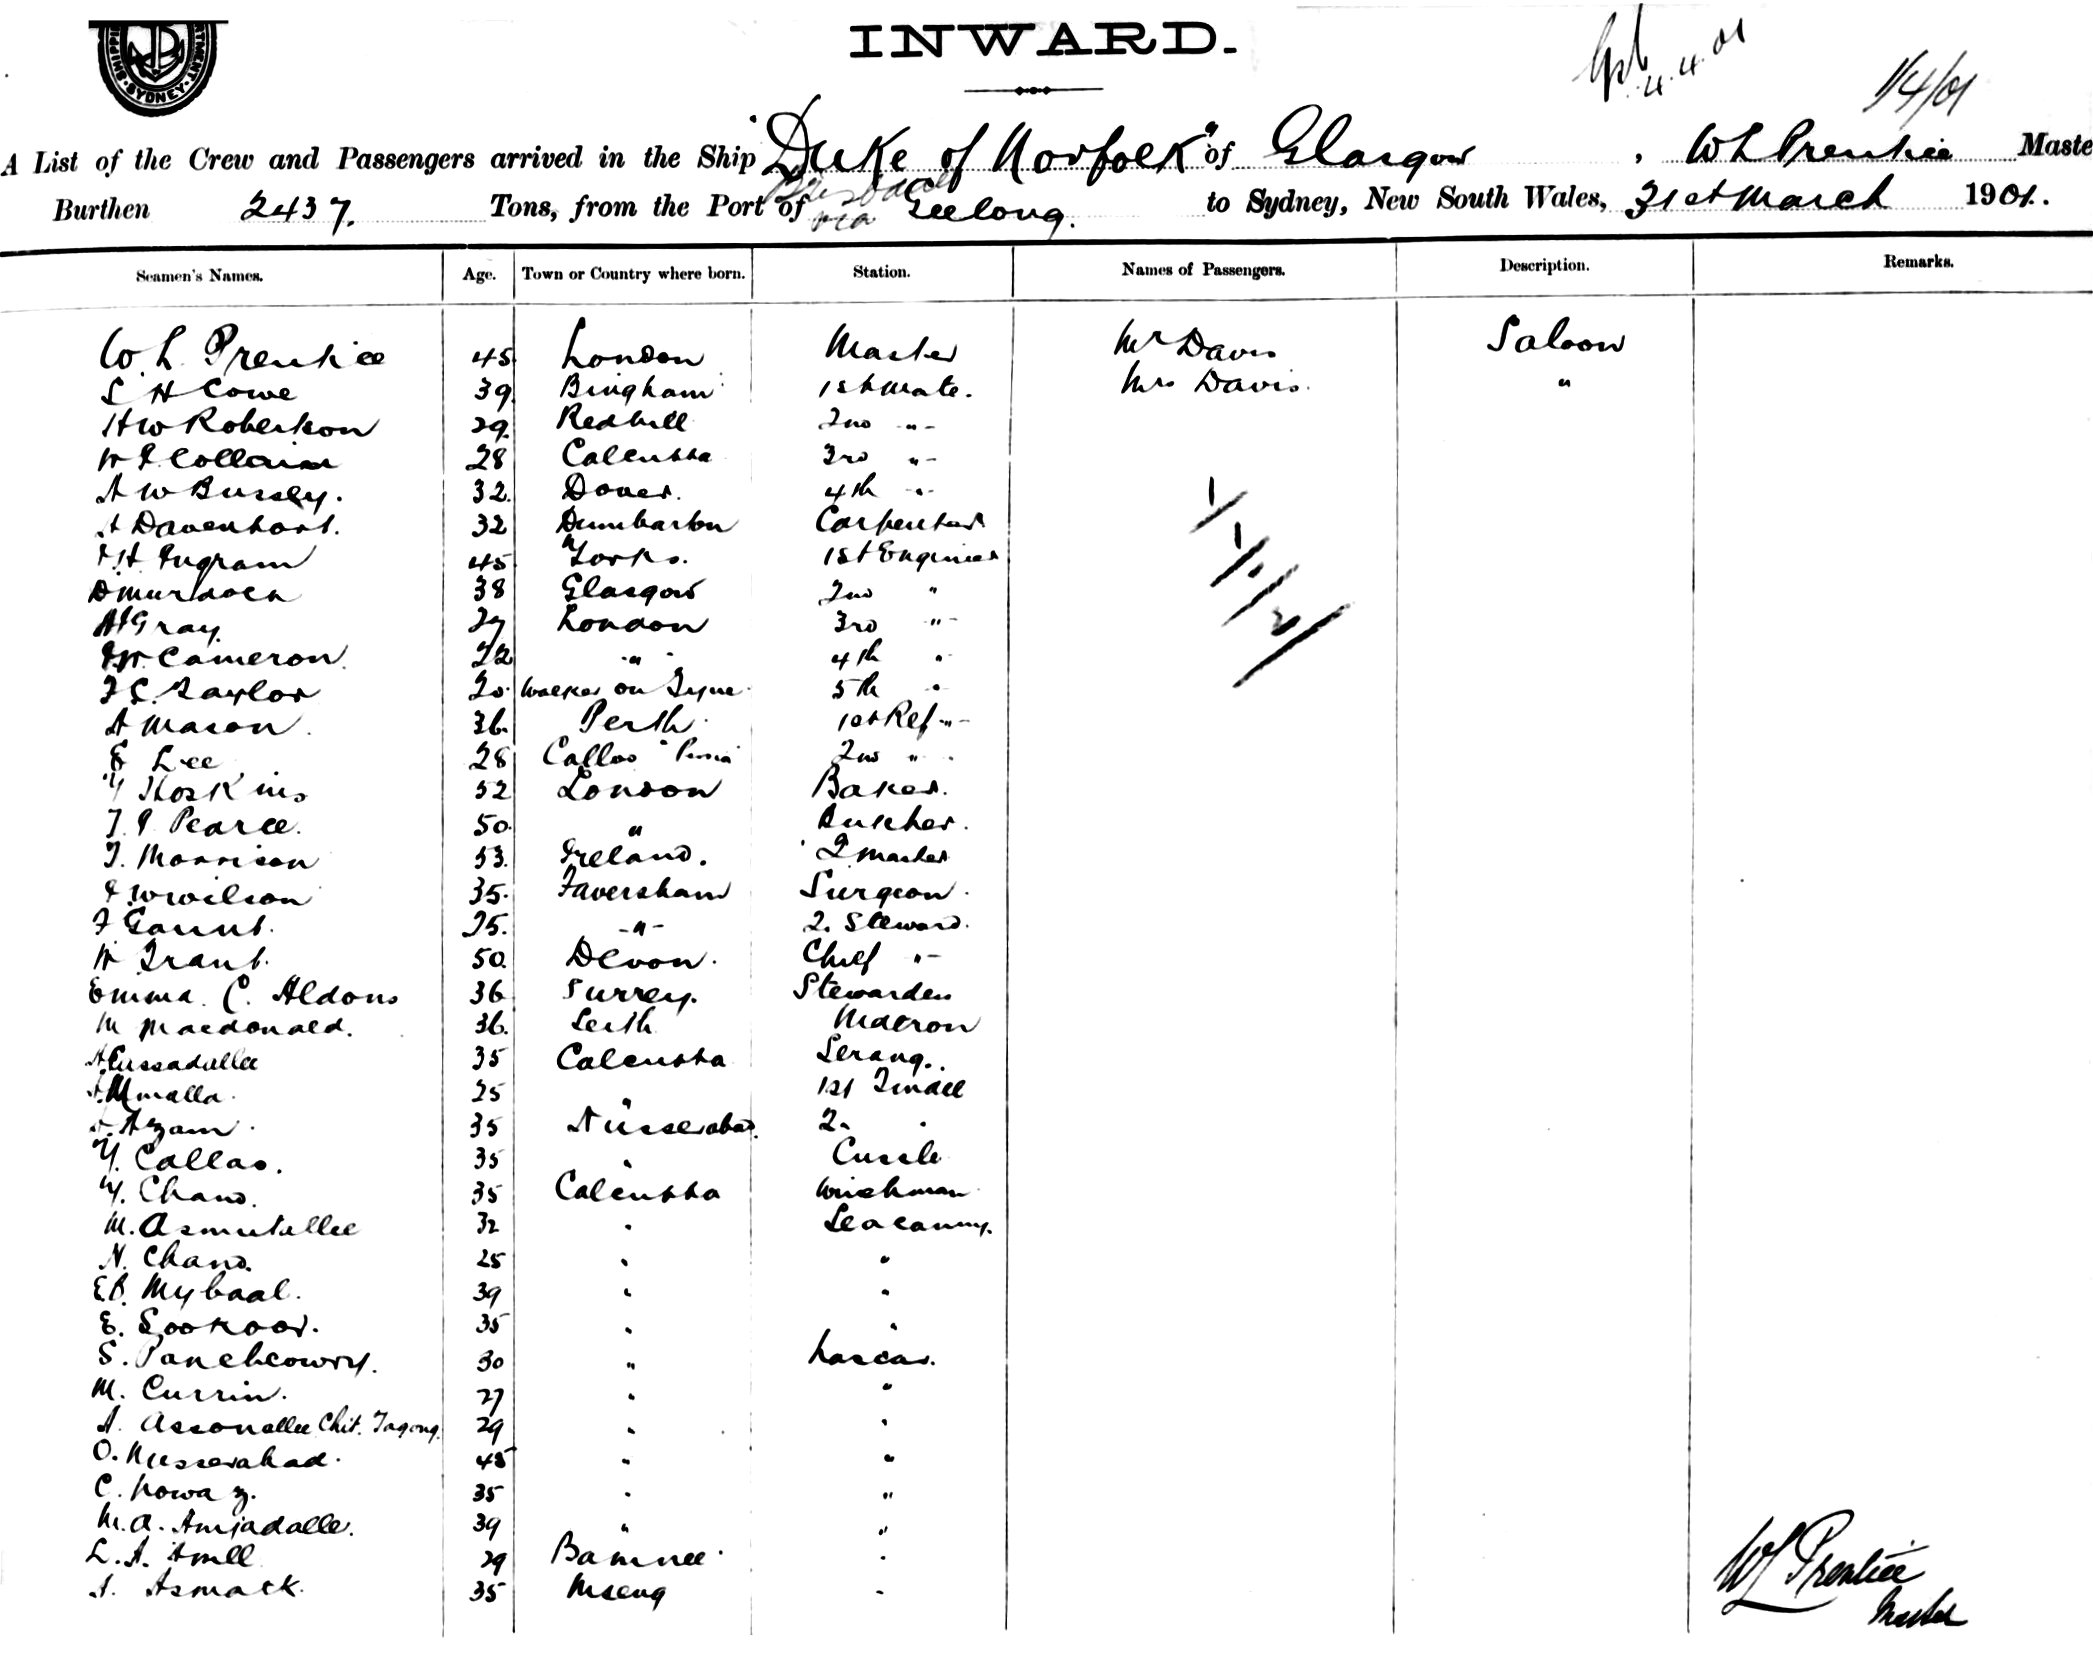 SHIPPI RTMENT
SYDNEY
INWARD.
4.4.01
1/4/01
A List of the Crew and Passengers arrived in the Ship "Duke of Norfolk" of Glasgow, W L Prentice Maste
Burthen 2437. Tons, from the Port of Brisbane via Geelong. to Sydney, New South Wales, 31st March 1901.
Seamen's Names. Age. Town or Country where born. Station. Names of Passengers. Description. Remarks.
W. L. Prentice 45 London Master Mr Davis Saloon
S H Cowe 39 Bingham 1st Mate. Mrs Davis. "
H W Robertson 29. Redhill 2nd -"-
28 Calcutta 3rd "-
A W Bussey. 32. Dover. 4th -"-
A Davenport. 32 Dumbarton Carpenter
H. Ingram 45 Yorks. 1st Engineer
D Murdoch 38 Glasgow 2nd "
Gray 27 London 3rd "-
Cameron. 22 -"- 4th "
F S. Taylor 20. Walker on Tyne 5th "
A Mason. 36. Perth. 1st Ref -"-
E Lee 28 Callao 2nd "
Y Hoskins 52 London Baker.
T. P Pearce. 50. " Butcher.
T. Morrison 53. Ireland. Q Master
W Wilson 35. Faversham Surgeon.
F Gaunt. 25. -"- 2. Steward.
W Grant. 50. Devon. Chief "-
Emma. C. Aldous 36 Surrey. Stewardess
M Macdonald. 36. Leith Matron
35 Calcutta Serang.
25 " 1st Tindal
Azam. 35 Nusserabad. 2. "
Y. Callao. 35 " Cussle
Y. Chand. 35 Calcutta Winchman
M. Asmutallee 32 " Seacunny.
N. Chand. 25 " "
E.B. Mybaal. 39 " "
E. Sookoor. 35 " "
S. Panchcowry. 30 " Lascar.
M. Currin. 27 " "
A. Assonallee Chit. Tagong. 29 " "
O. Nusserabad. 45 " "
C. Nowaz. 35 " "
M. A. Amjadalle. 39 " "
L. A. Amll 29 Bamnee "
A. Asmack. 35 Mseng "
1/1/1/2/
W L Prentice
Master